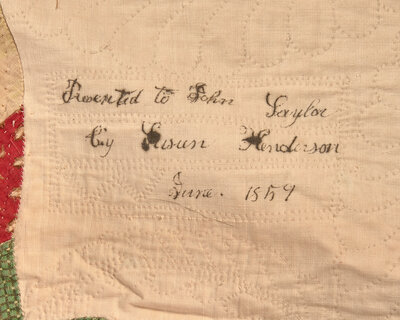 Presented to John Taylor
By Susan Henderson
June. 1859